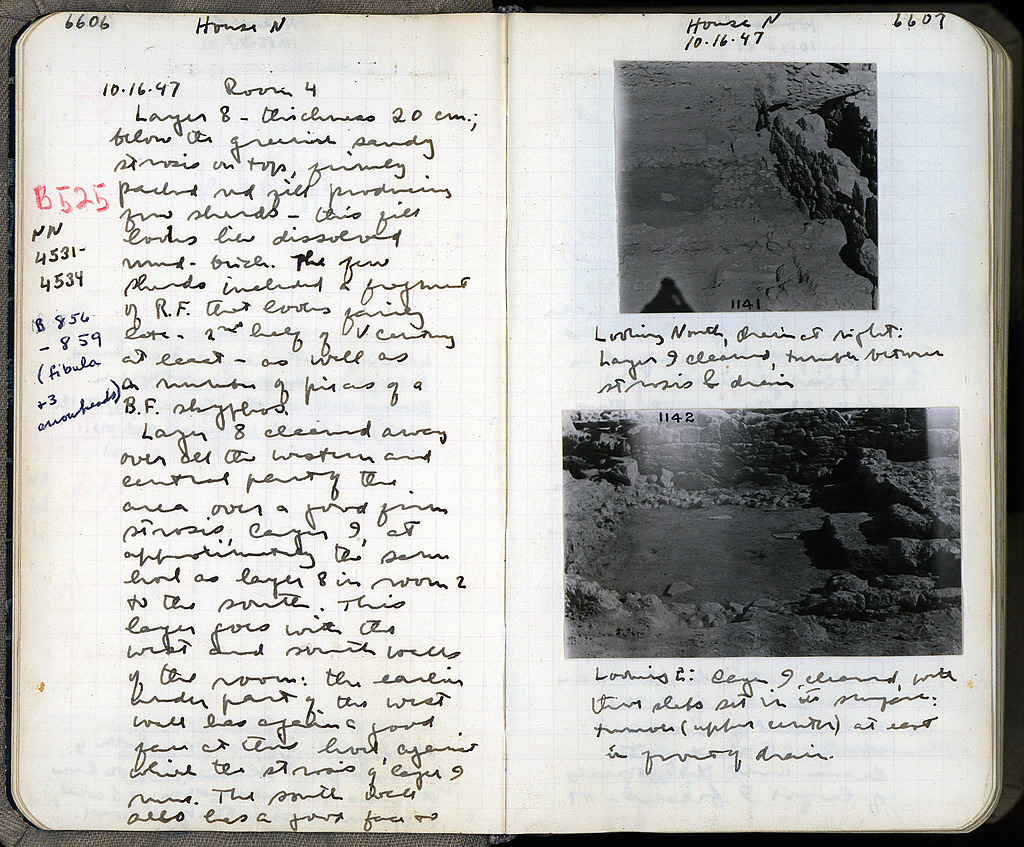 6606
House N
10·16·47 Room 4
Layer 8 - thickness 20 cm.;
below the greenish sandy
strosis on top, firmly
packed red fill producing
few sherds - this fill
looks like dissolved
mud-brick. The few
sherds included a fragment
of R.F. that looks fairly
late - 2nd half of V century
at least - as well as
a number of pieces of a
B.F. skyphos.
Layer 8 cleared away
over all the western and
central part of the
area over a good firm
strosis, layer 9, at
approximately the same
level as layer 8 in room 2
to the south. This
layer goes with the
west and south walls
of the room: the earlier
under part of the west
wall has again a good
face at this level, against
which the strosis of layer 9
runs. The south wall
also has a good face to
B525
NN
4531-
4534
B 856
- 859
(fibula
+3
arrowheads)
6607
House N
10·16·47
1141
Looking North, drain at right:
Layer 9 cleared, tumble between
strosis & drain
1142
Looking E: layer 9 cleared, with
three slabs set in its surface:
tumble (upper center) at east
in front of drain.